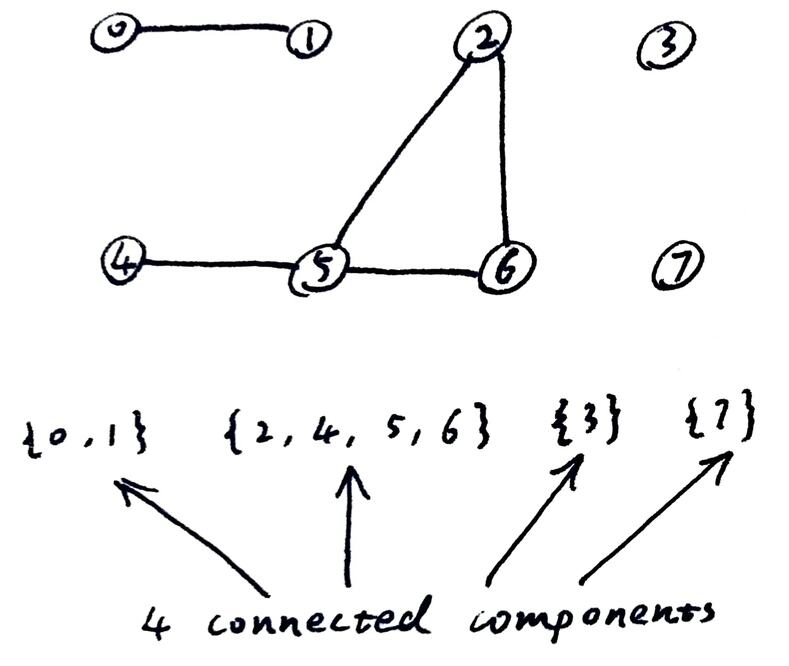 0 1 2 3
4 5 6 7
{0,1} {2, 4, 5, 6} {3} {7}
4 connected components